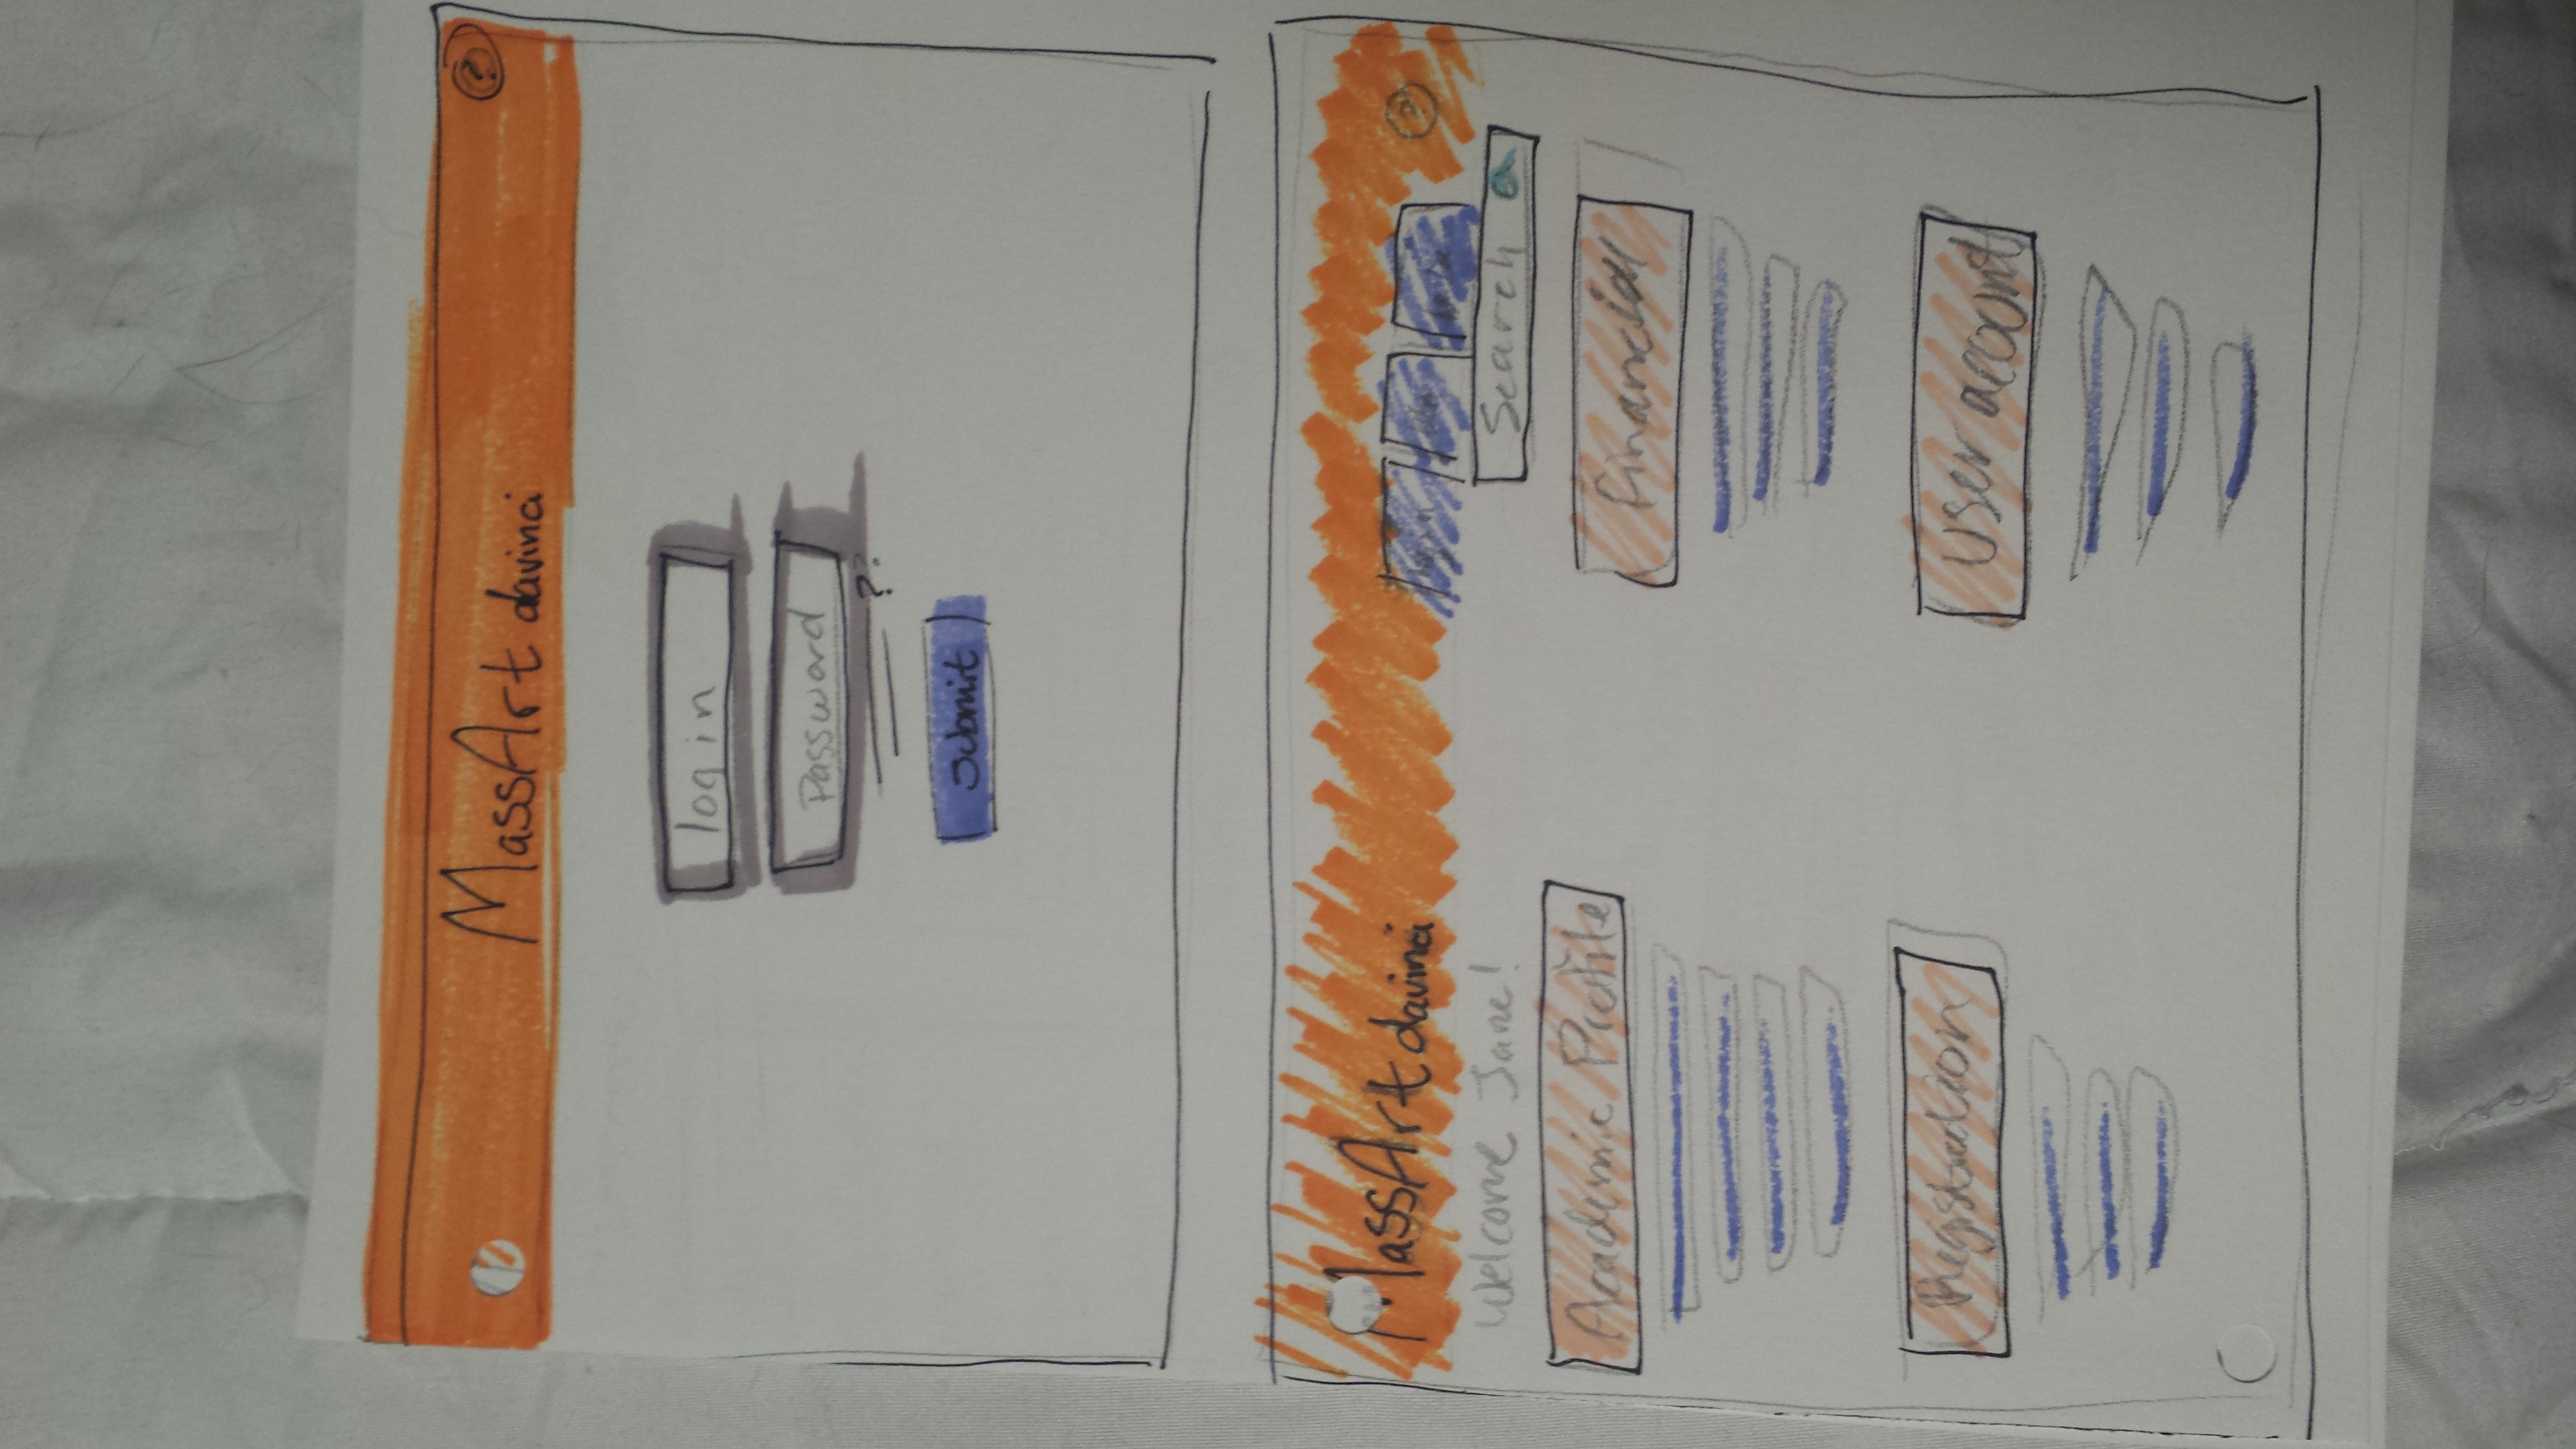 MassArt davinci ?
login
Password
??
Submit
MassArt davinci ?
Welcome Jane!
Search
Academic Profile
financial
Registration
User acount